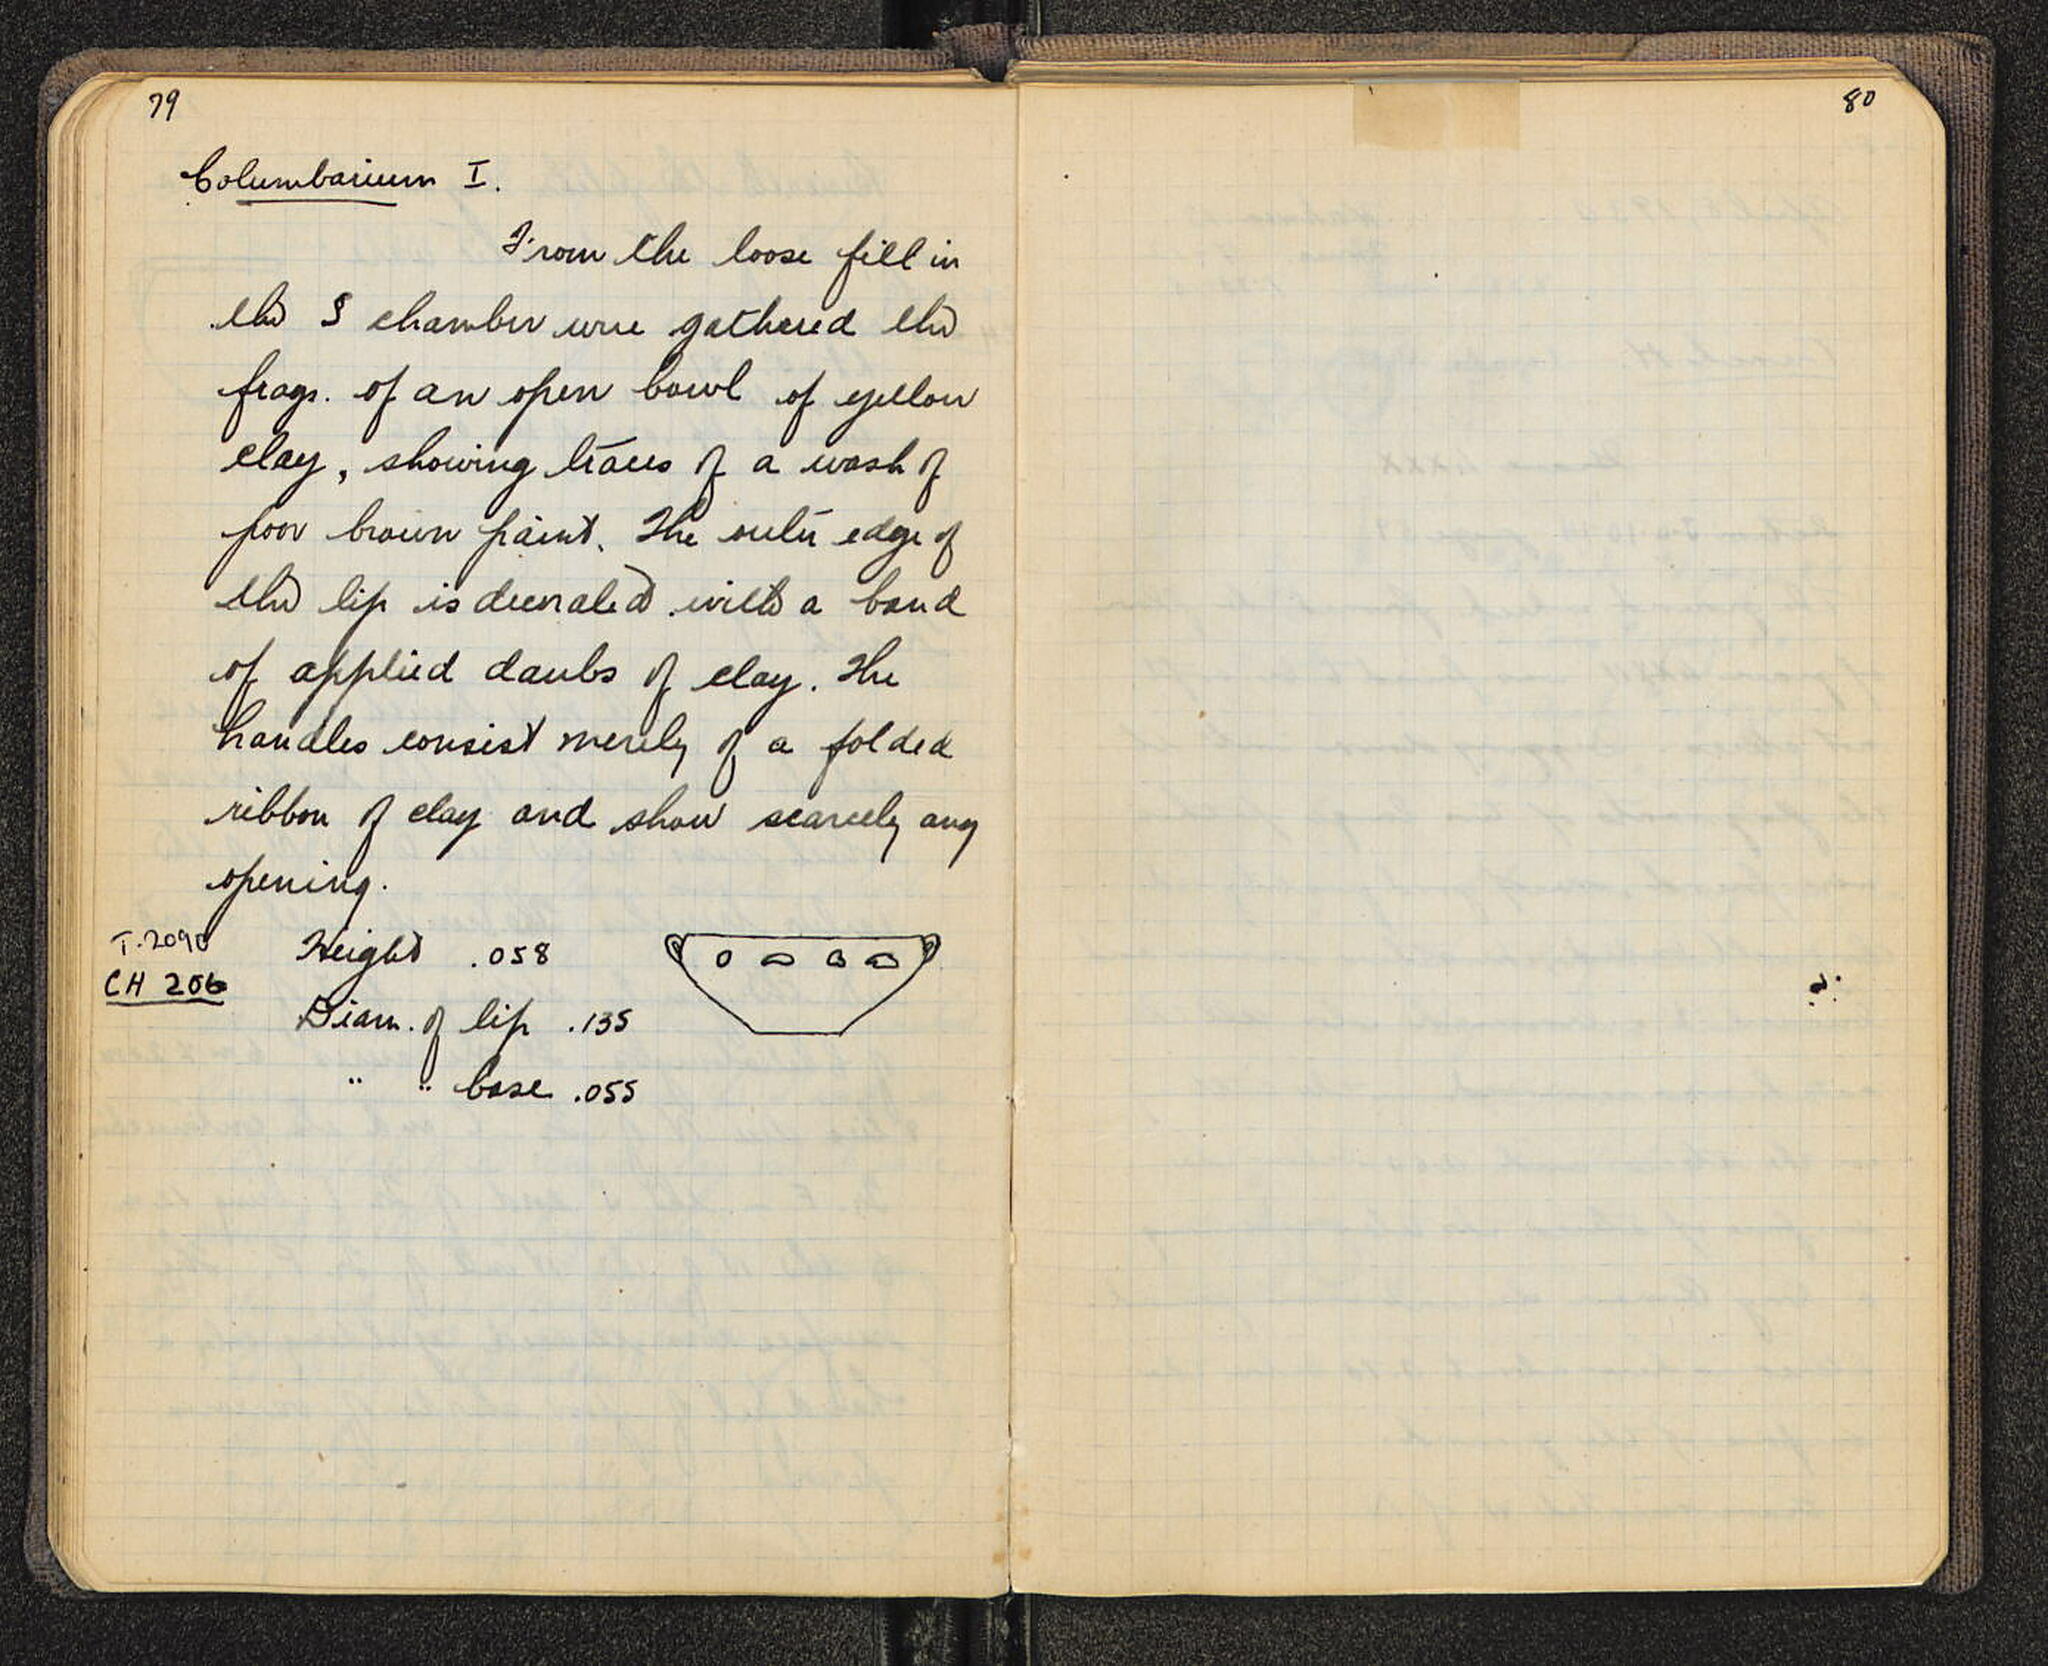 79
Columbarium I.
From the loose fill in
the S chamber were gathered the
frags. of an open bowl of yellow
clay, showing traces of a wash of
poor brown paint. The outer edge of
the lip is decorated with a band
of applied daubs of clay. The
handles consist merely of a folded
ribbon of clay and show scarcely any
opening.
T. 2090
CH 206
Height .058
Diam. of lip .135
" " base .055
80